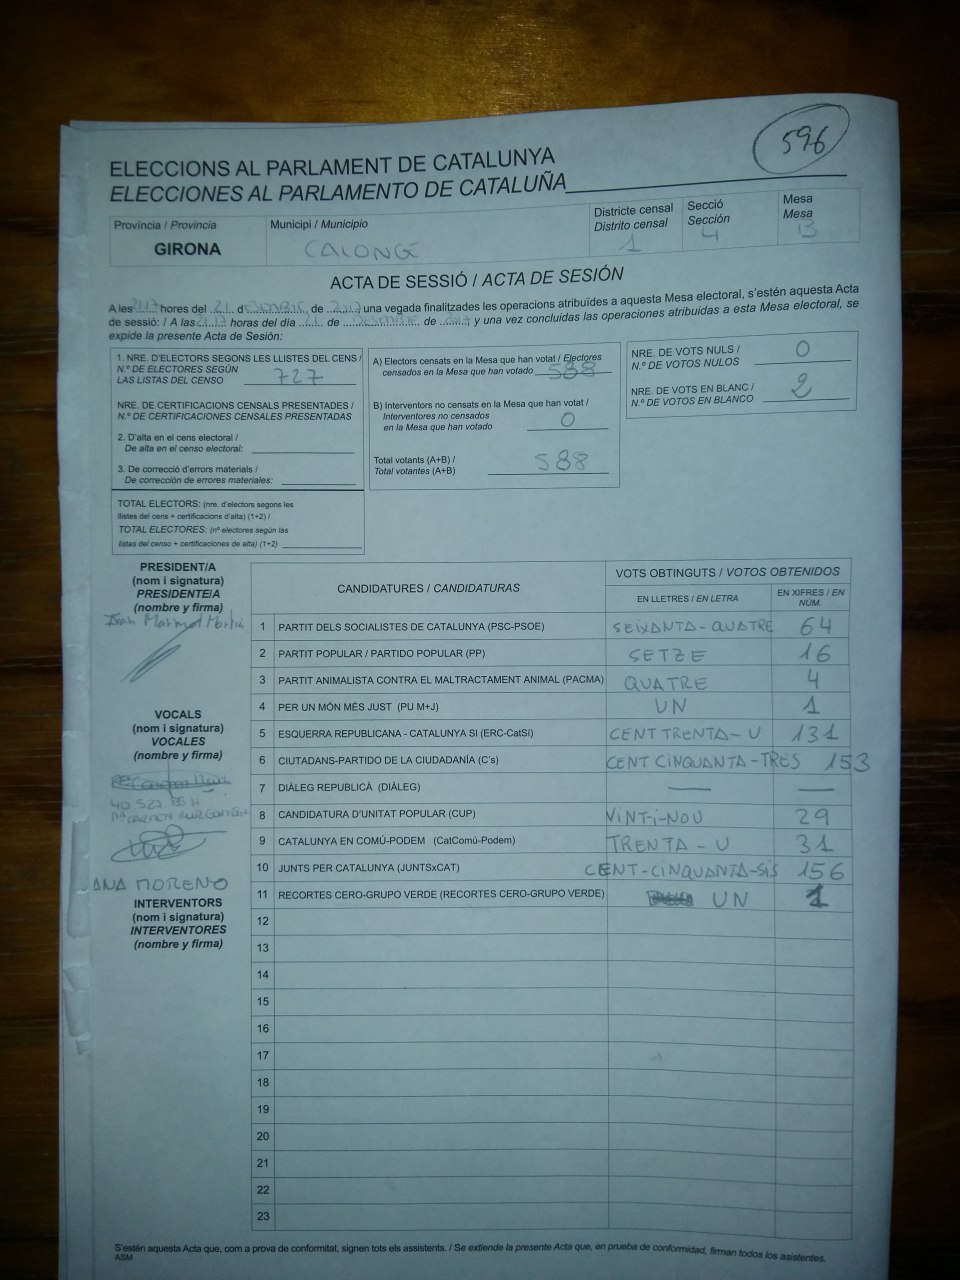 596
ELECCIONS AL PARLAMENT DE CATALUNYA
ELECCIONES AL PARLAMENTO DE CATALUÑA
Província / Provincia
GIRONA
Municipi / Municipio
CALONGE
Districte censal
Distrito censal
1
Secció
Sección
4
Mesa
Mesa
B
ACTA DE SESSIÓ / ACTA DE SESIÓN
A les hores del 21 de de 2017 una vegada finalitzades les operacions atribuïdes a aquesta Mesa electoral, s'estén aquesta Acta
de sessió: / A las horas del día 21 de de 2017, y una vez concluidas las operaciones atribuidas a esta Mesa electoral, se
expide la presente Acta de Sesión:
1. NRE. D'ELECTORS SEGONS LES LLISTES DEL CENS /
N.º DE ELECTORES SEGÚN
LAS LISTAS DEL CENSO 727
NRE. DE CERTIFICACIONS CENSALS PRESENTADES /
N.º DE CERTIFICACIONES CENSALES PRESENTADAS
2. D'alta en el cens electoral /
De alta en el censo electoral:
3. De correcció d'errors materials /
De corrección de errores materiales:
TOTAL ELECTORS: (nre. d'electors segons les
llistes del cens + certificacions d'alta) (1+2) /
TOTAL ELECTORES: (nº electores según las
listas del censo + certificaciones de alta) (1+2)
A) Electors censats en la Mesa que han votat / Electores
censados en la Mesa que han votado 588
B) Interventors no censats en la Mesa que han votat /
Interventores no censados
en la Mesa que han votado 0
Total votants (A+B) /
Total votantes (A+B) 588
NRE. DE VOTS NULS /
N.º DE VOTOS NULOS 0
NRE. DE VOTS EN BLANC /
N.º DE VOTOS EN BLANCO 2
PRESIDENT/A
(nom i signatura)
PRESIDENTE/A
(nombre y firma)
VOCALS
(nom i signatura)
VOCALES
(nombre y firma)
ANA MORENO
INTERVENTORS
(nom i signatura)
INTERVENTORES
(nombre y firma)
CANDIDATURES / CANDIDATURAS
VOTS OBTINGUTS / VOTOS OBTENIDOS
EN LLETRES / EN LETRA
EN XIFRES / EN
NÚM.
1 PARTIT DELS SOCIALISTES DE CATALUNYA (PSC-PSOE) SEIXANTA-QUATRE 64
2 PARTIT POPULAR / PARTIDO POPULAR (PP) SETZE 16
3 PARTIT ANIMALISTA CONTRA EL MALTRACTAMENT ANIMAL (PACMA) QUATRE 4
4 PER UN MÓN MÉS JUST (PU M+J) UN 1
5 ESQUERRA REPUBLICANA - CATALUNYA SI (ERC-CatSí) CENT TRENTA-U 131
6 CIUTADANS-PARTIDO DE LA CIUDADANÍA (C's) CENT CINQUANTA-TRES 153
7 DIÀLEG REPUBLICÀ (DIÀLEG) — —
8 CANDIDATURA D'UNITAT POPULAR (CUP) VINT-i-NOU 29
9 CATALUNYA EN COMÚ-PODEM (CatComú-Podem) TRENTA-U 31
10 JUNTS PER CATALUNYA (JUNTSxCAT) CENT-CINQUANTA-SIS 156
11 RECORTES CERO-GRUPO VERDE (RECORTES CERO-GRUPO VERDE) UN 1
12
13
14
15
16
17
18
19
20
21
22
23
S'estén aquesta Acta que, com a prova de conformitat, signen tots els assistents. / Se extiende la presente Acta que, en prueba de conformidad, firman todos los asistentes.
ASM